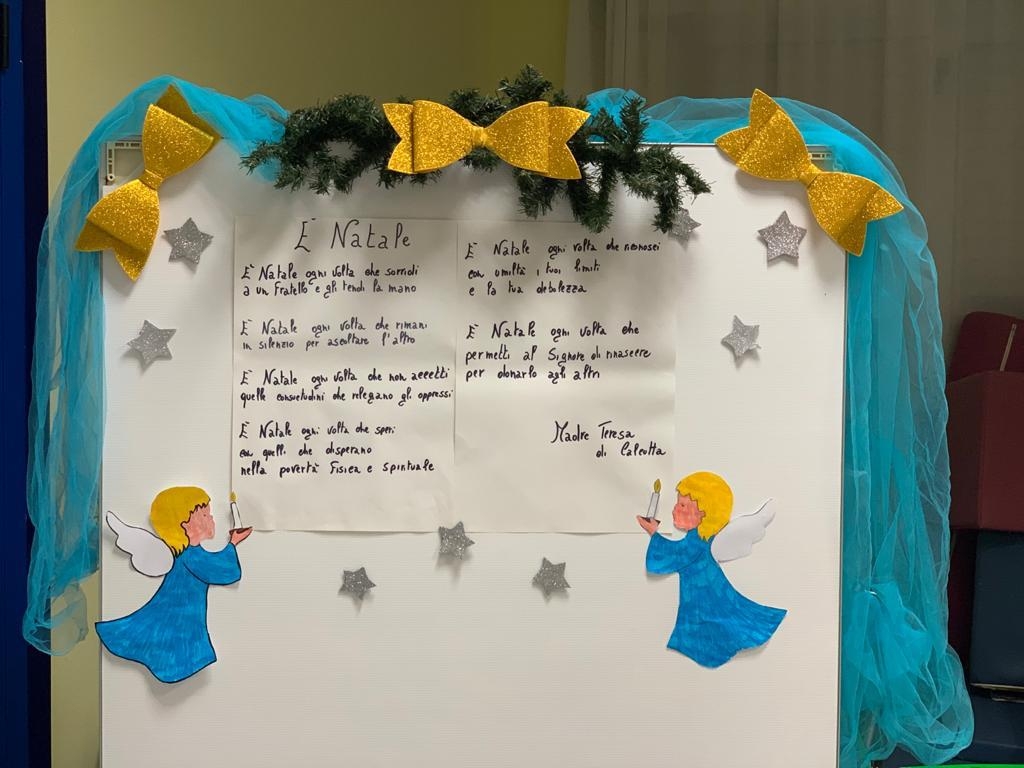 È Natale
È Natale ogni volta che sorridi
a un fratello e gli tendi la mano
È Natale ogni volta che rimani
in silenzio per ascoltare l'altro
È Natale ogni volta che non accetti
quelle consuetudini che relegano gli oppressi
È Natale ogni volta che speri
con quelli che disperano
nella povertà fisica e spirituale
È Natale ogni volta che riconosci
con umiltà i tuoi limiti
e la tua debolezza
È Natale ogni volta che
permetti al Signore di rinascere
per donarlo agli altri
Madre Teresa
di Calcutta